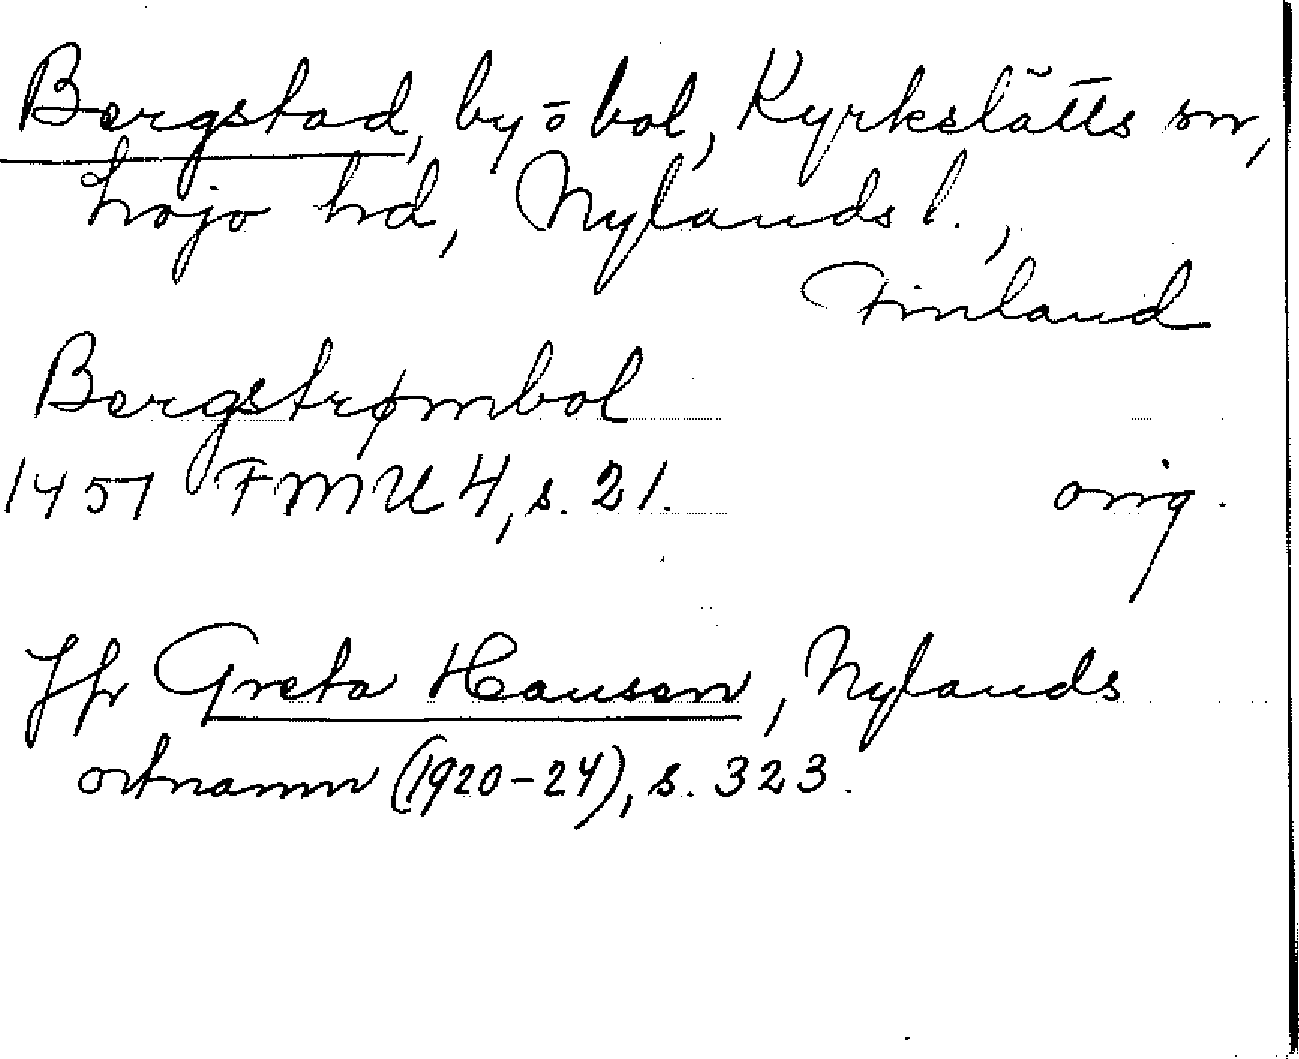 Bergstad, by o bol, Kyrkslätts sn,
Lojo hd, Nylands l.,
Finland
Bergstrømbol
1451 FMU 4, s. 21. orig.
Jfr Greta Hausen, Nylands
ortnamn (1920-24), s. 323.